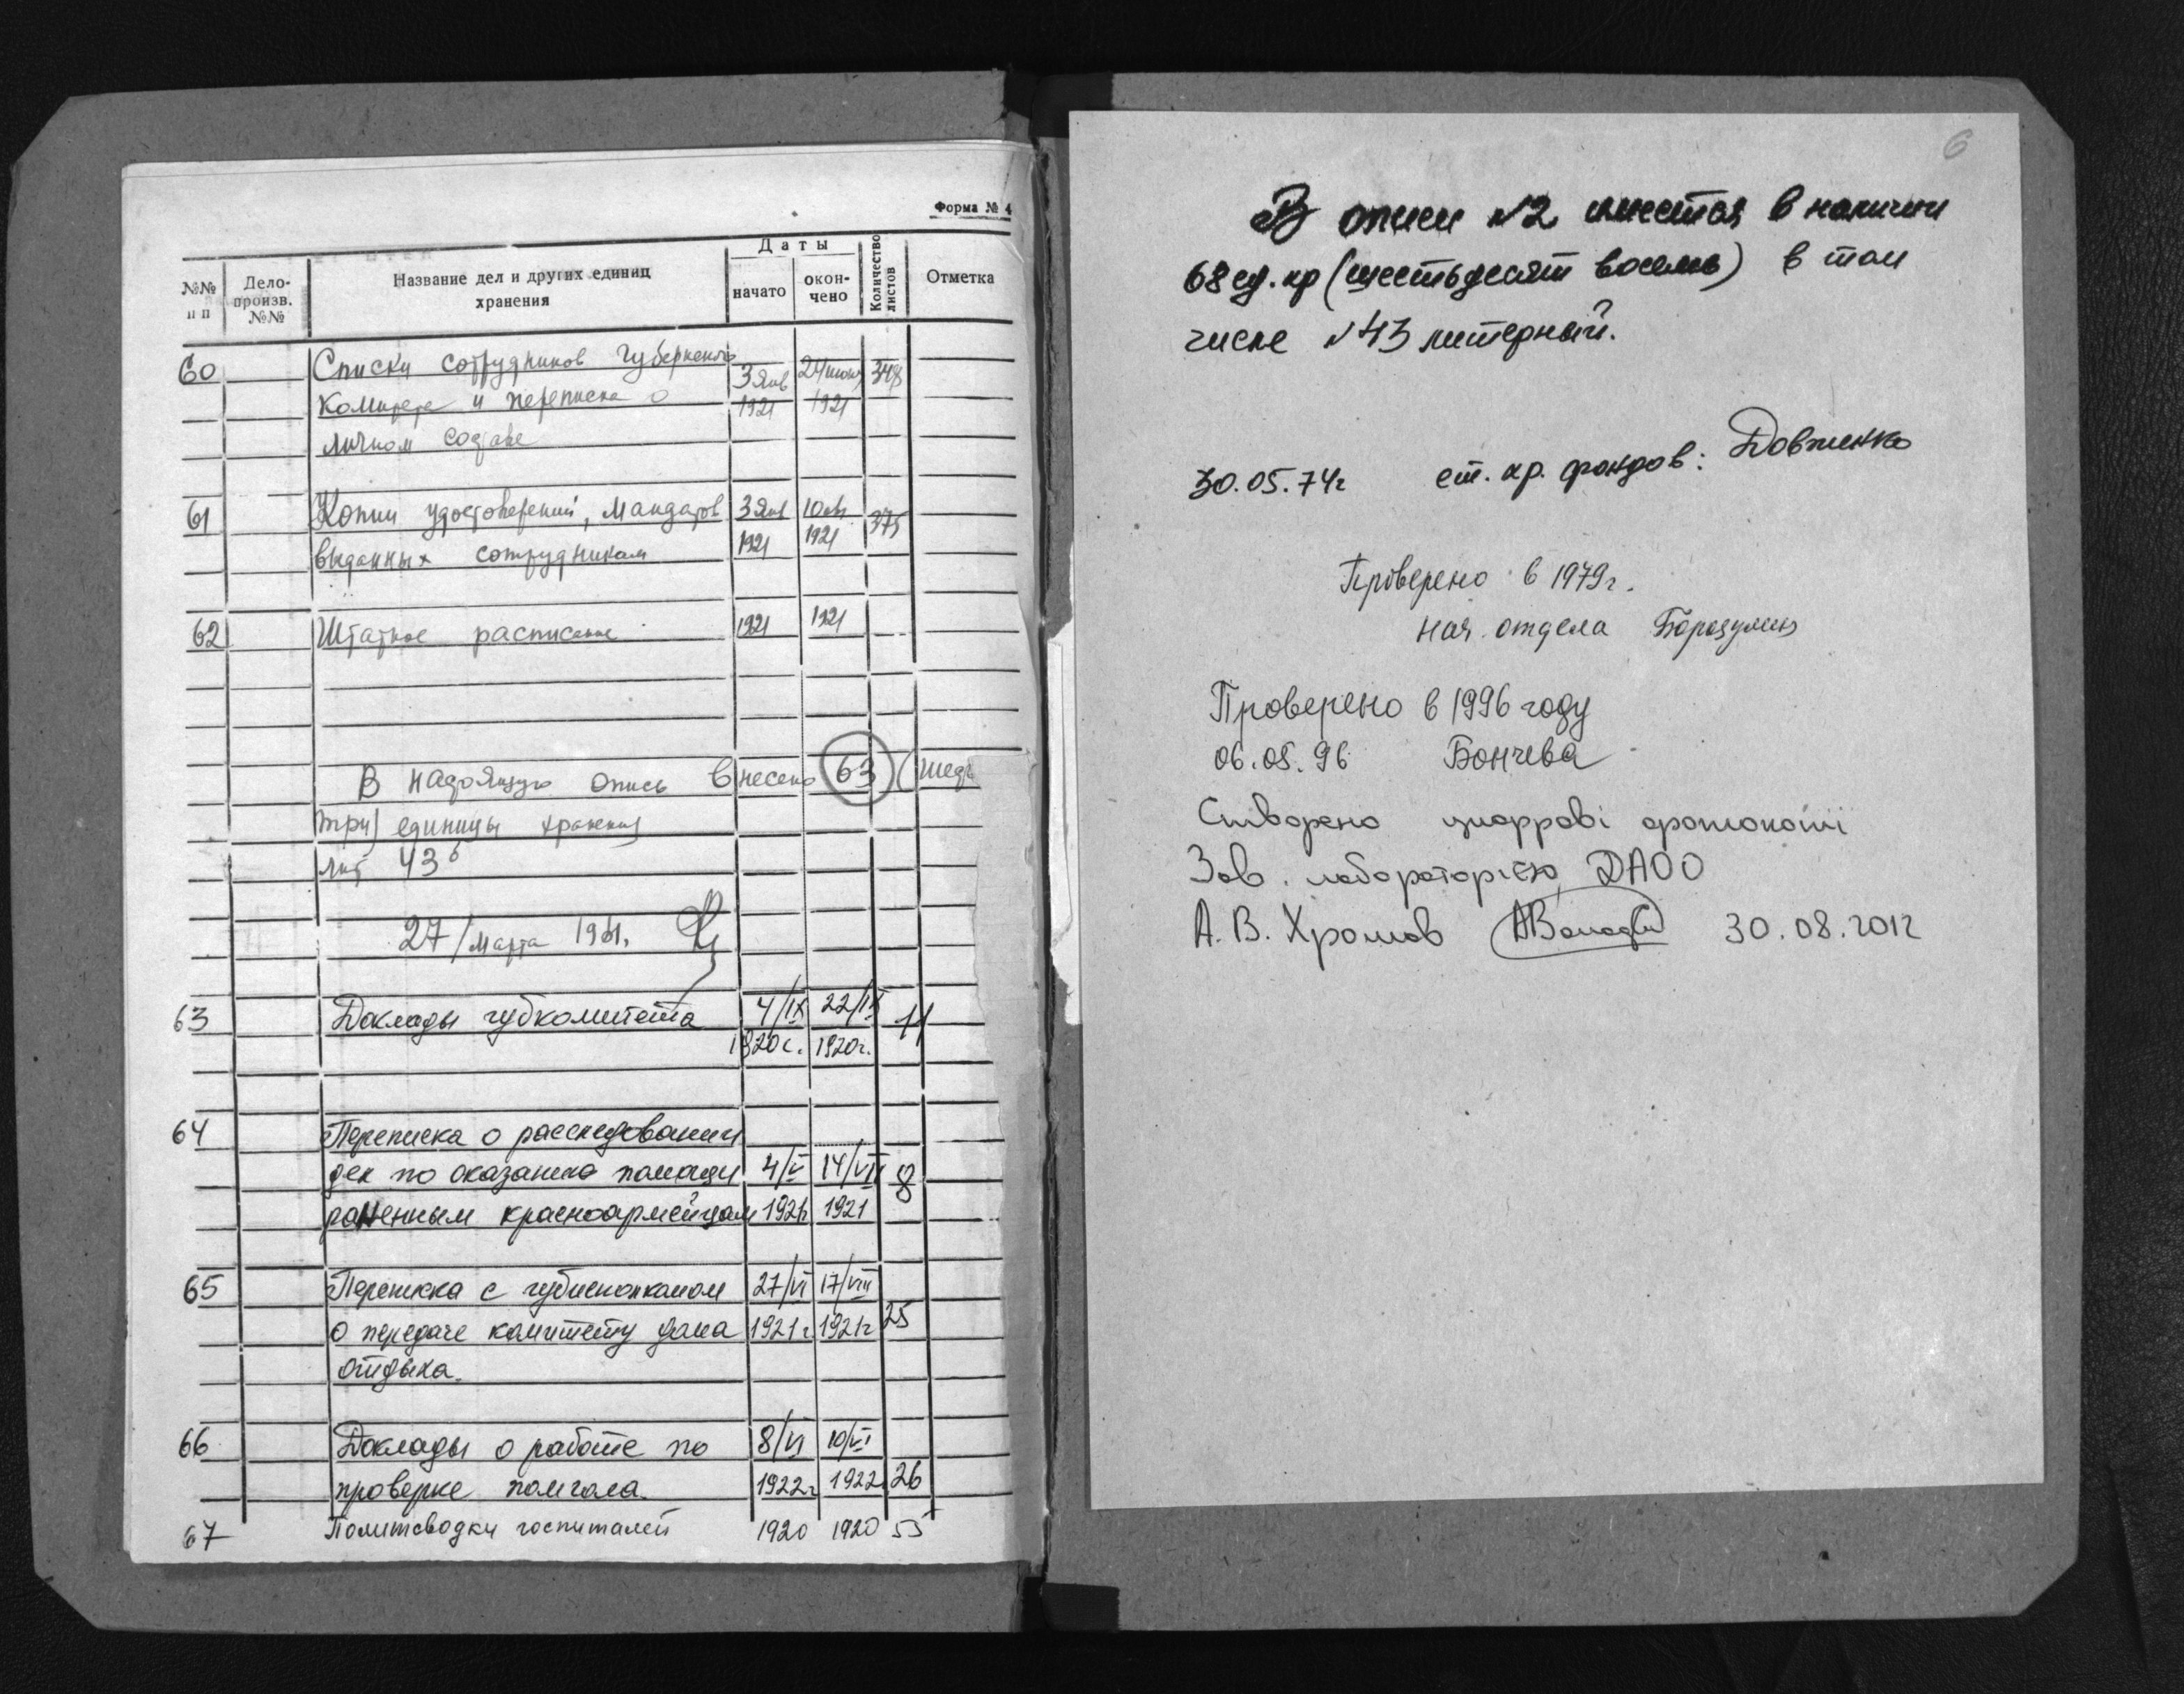 Форма № 4
№№ п п
Дело-произв. №№
Название дел и других единиц хранения
Даты
начато
окончено
Количество листов
Отметка
60 Списки сотрудников Губернского 3 янв 24 июня 348
комитета и переписка о 1921 1921
личном составе
61 Копии удостоверений, мандатов 3 янв 10 авг 375
выданных сотрудникам 1921 1921
62 Штатное расписание 1921 1921
В настоящую опись внесено 63 (шесть
три) единицы хранения
лит 43б
27/марта 1961.
63 Доклады губкомитета 4/IX 22/IX 11
1920г. 1920г.
64 Переписка о расследовании
дел по оказанию помощи 4/V 14/VII 8
раненным красноармейцам 1921г 1921
65 Переписка с губисполкомом 27/VI 17/VIII
о передаче комитету дома 1921г 1921г 25
отдыха.
66 Доклады о работе по 8/VI 10/VI
проверке помгола. 1922г 1922 26
67 Политсводки госпиталей 1920 1920 55
6
В описи №2 имеется в наличии
68 ед. хр (шестьдесят восемь) в том
числе №43 литерный.
30.05.74г ст. хр. фондов: Довженко
Проверено в 1979г.
нач. отдела
Проверено в 1996 году
06.05.96 Бончева
Створено цифрові фотокопії
Зав. лабораторією ДАОО
А. В. Хромов 30.08.2012